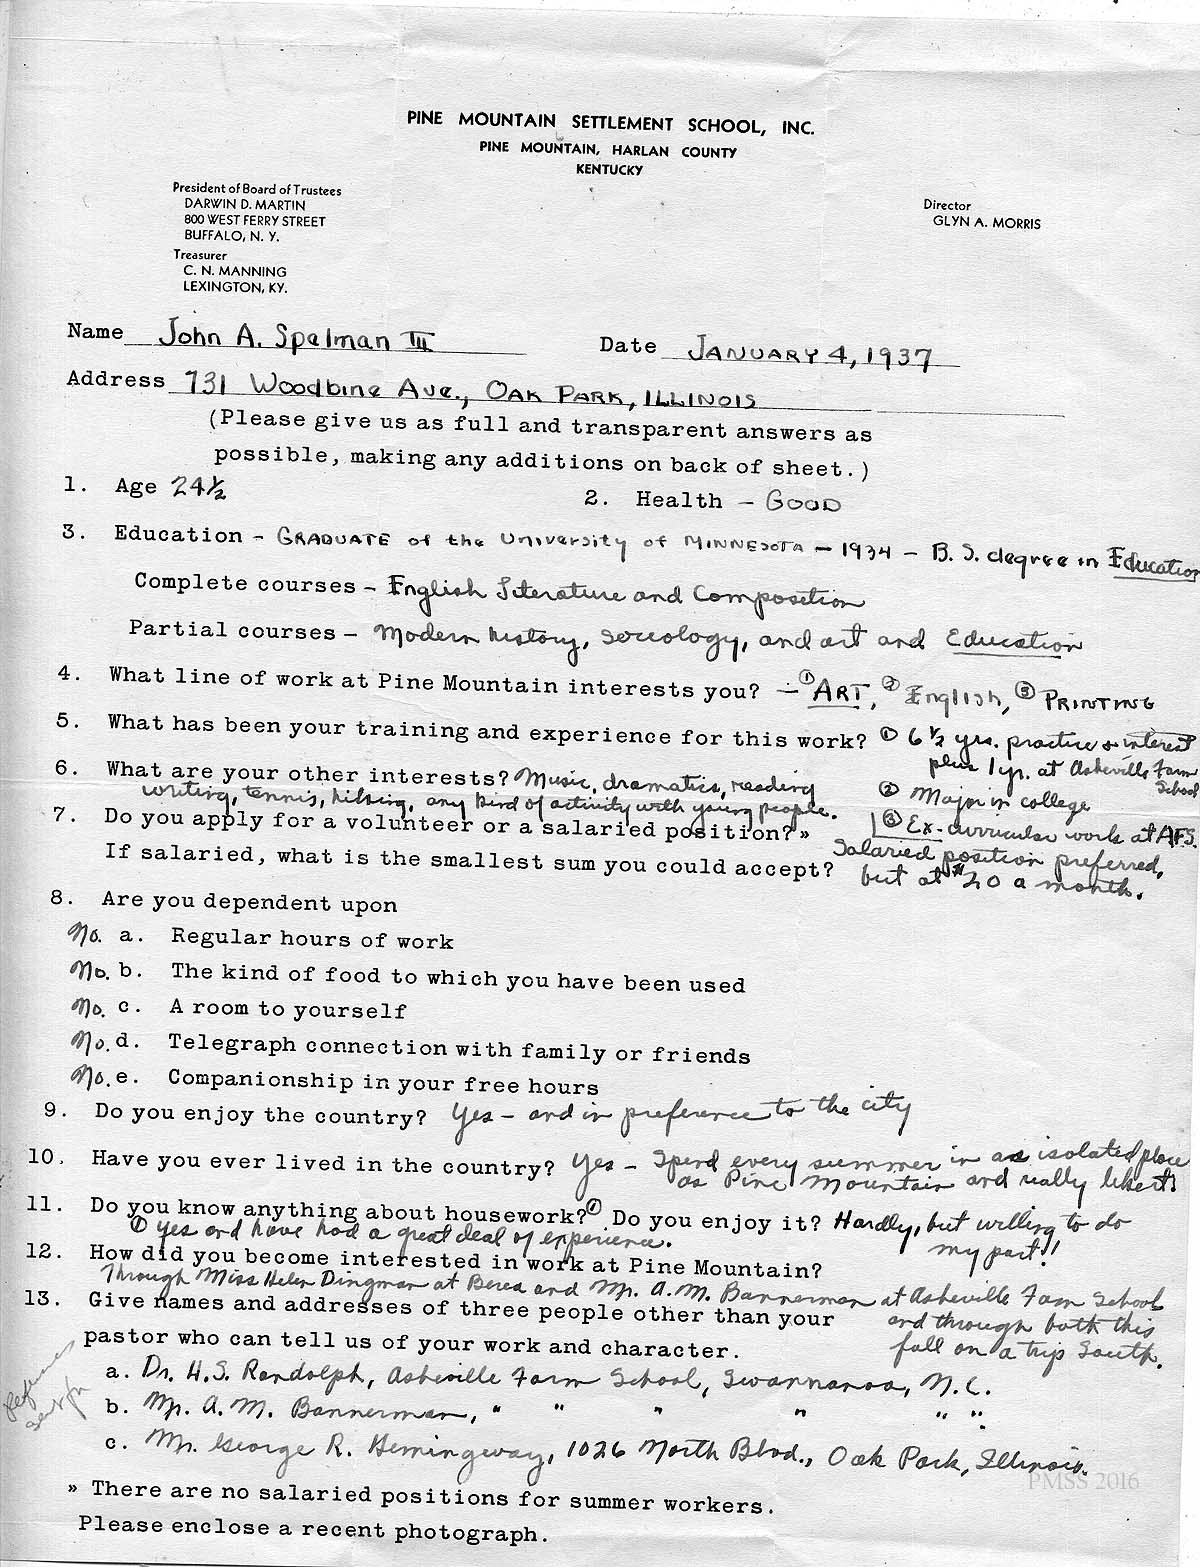 PINE MOUNTAIN SETTLEMENT SCHOOL, INC.
PINE MOUNTAIN, HARLAN COUNTY
KENTUCKY
President of Board of Trustees
DARWIN D. MARTIN
800 WEST FERRY STREET
BUFFALO, N. Y.
Treasurer
C. N. MANNING
LEXINGTON, KY.
Director
GLYN A. MORRIS
Name John A. Spelman III Date JANUARY 4, 1937
Address 731 Woodbine Ave., OAK PARK, ILLINOIS
(Please give us as full and transparent answers as
possible, making any additions on back of sheet.)
1. Age 24½ 2. Health - GOOD
3. Education - GRADUATE of the University of MINNESOTA - 1934 - B.S. degree in Education
Complete courses - English Literature and Composition
Partial courses - Modern history, sociology, and art and Education
4. What line of work at Pine Mountain interests you? - ① ART, ② English, ③ PRINTING
5. What has been your training and experience for this work? ① 6½ yrs. practice & interest
plus 1 yr. at Asheville Farm
School
② Major in college
③ Ex-curricular work at A.F.S.
6. What are your other interests? Music, dramatics, reading
writing, tennis, hiking, any kind of activity with young people.
7. Do you apply for a volunteer or a salaried position?»
If salaried, what is the smallest sum you could accept?
Salaried position preferred,
but at $20 a month.
8. Are you dependent upon
No. a. Regular hours of work
No. b. The kind of food to which you have been used
No. c. A room to yourself
No. d. Telegraph connection with family or friends
No. e. Companionship in your free hours
9. Do you enjoy the country? Yes - and in preference to the city
10. Have you ever lived in the country? Yes - Spend every summer in as isolated place
as Pine Mountain and really like it!
11. Do you know anything about housework?① Do you enjoy it? Hardly, but willing to do
my part!!
① Yes and have had a great deal of experience.
12. How did you become interested in work at Pine Mountain?
Through Miss Helen Dingman at Berea and Mr. A.M. Bannerman at Asheville Farm School
and through both this
fall on a trip South.
13. Give names and addresses of three people other than your
pastor who can tell us of your work and character.
a. Dr. H.S. Randolph, Asheville Farm School, Swannanoa, N.C.
b. Mr. A. M. Bannerman, " " " " " ".
c. Mr. George R. Hemingway, 1026 North Blvd., Oak Park, Illinois.
» There are no salaried positions for summer workers.
Please enclose a recent photograph.
PMSS 2016